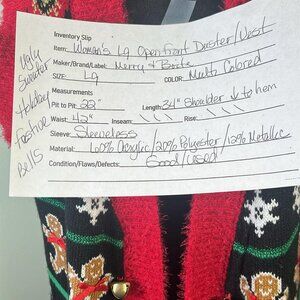 Inventory Slip
Item: Woman's Lg Open front Duster/Vest
Maker/Brand/Label: Merry & Brite
SIZE: Lg COLOR: Multi Colored
Measurements
Pit to Pit: 22" Length: 34" Shoulder ↓ to hem
Waist: 42" Inseam: Rise:
Sleeve: Sleeveless
Material: 60% Acrylic/20% Polyester/12% Metallic
Condition/Flaws/Defects: Good/Used
Ugly
Sweater
Holiday
Festive
Bells